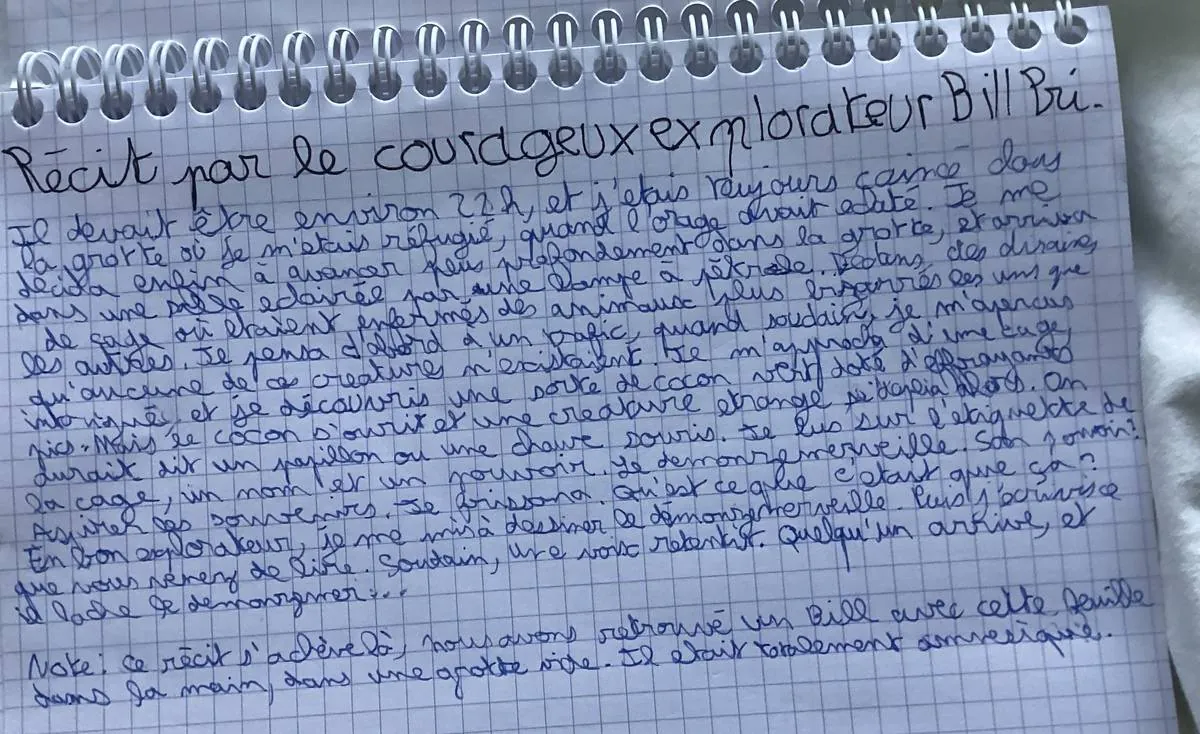 Récit par le courageux explorateur Bill Bri.
Il devait être environ 22h, et j'étais toujours coincé dans
la grotte où je m'étais réfugié, quand l'orage avait eclaté. Je me
décida enfin à avancer plus profondement dans la grotte, et arriva
dans une salle eclairée par une lampe à pétrole. Dedans, des dizaines
de cage où étaient enfermés des animaux plus bizarres les uns que
les autres. Je pensa d'abord à un trafic, quand soudain, je m'aperçus
qu'aucune de ces creature n'existaient. Je m'approcha d'une cage,
intrigué, et je découvris une sorte de cocon vert doté d'effrayants
pics. Mais le cocon s'ouvrit et une creature étrange alors. On
aurait dit un papillon ou une chauve souris. Je lus sur l'étiquette de
la cage, un nom et un pouvoir. Le demonrgmerveille. Son pouvoir?
Aspirer les souvenirs. Je frissona. Qu'est ce que c'était que ça?
En bon explorateur, je me mis à dessiner le demonrgmerveille. Puis j'écrivis ce
que vous venez de lire. Soudain, une voix retentit. Quelqu'un arrive, et
il lache le demonrgmer...
Note: Ce récit s'achève là, nous avons retrouvé un Bill avec cette feuille
dans la main, dans une grotte vide. Il était totalement amnesique.